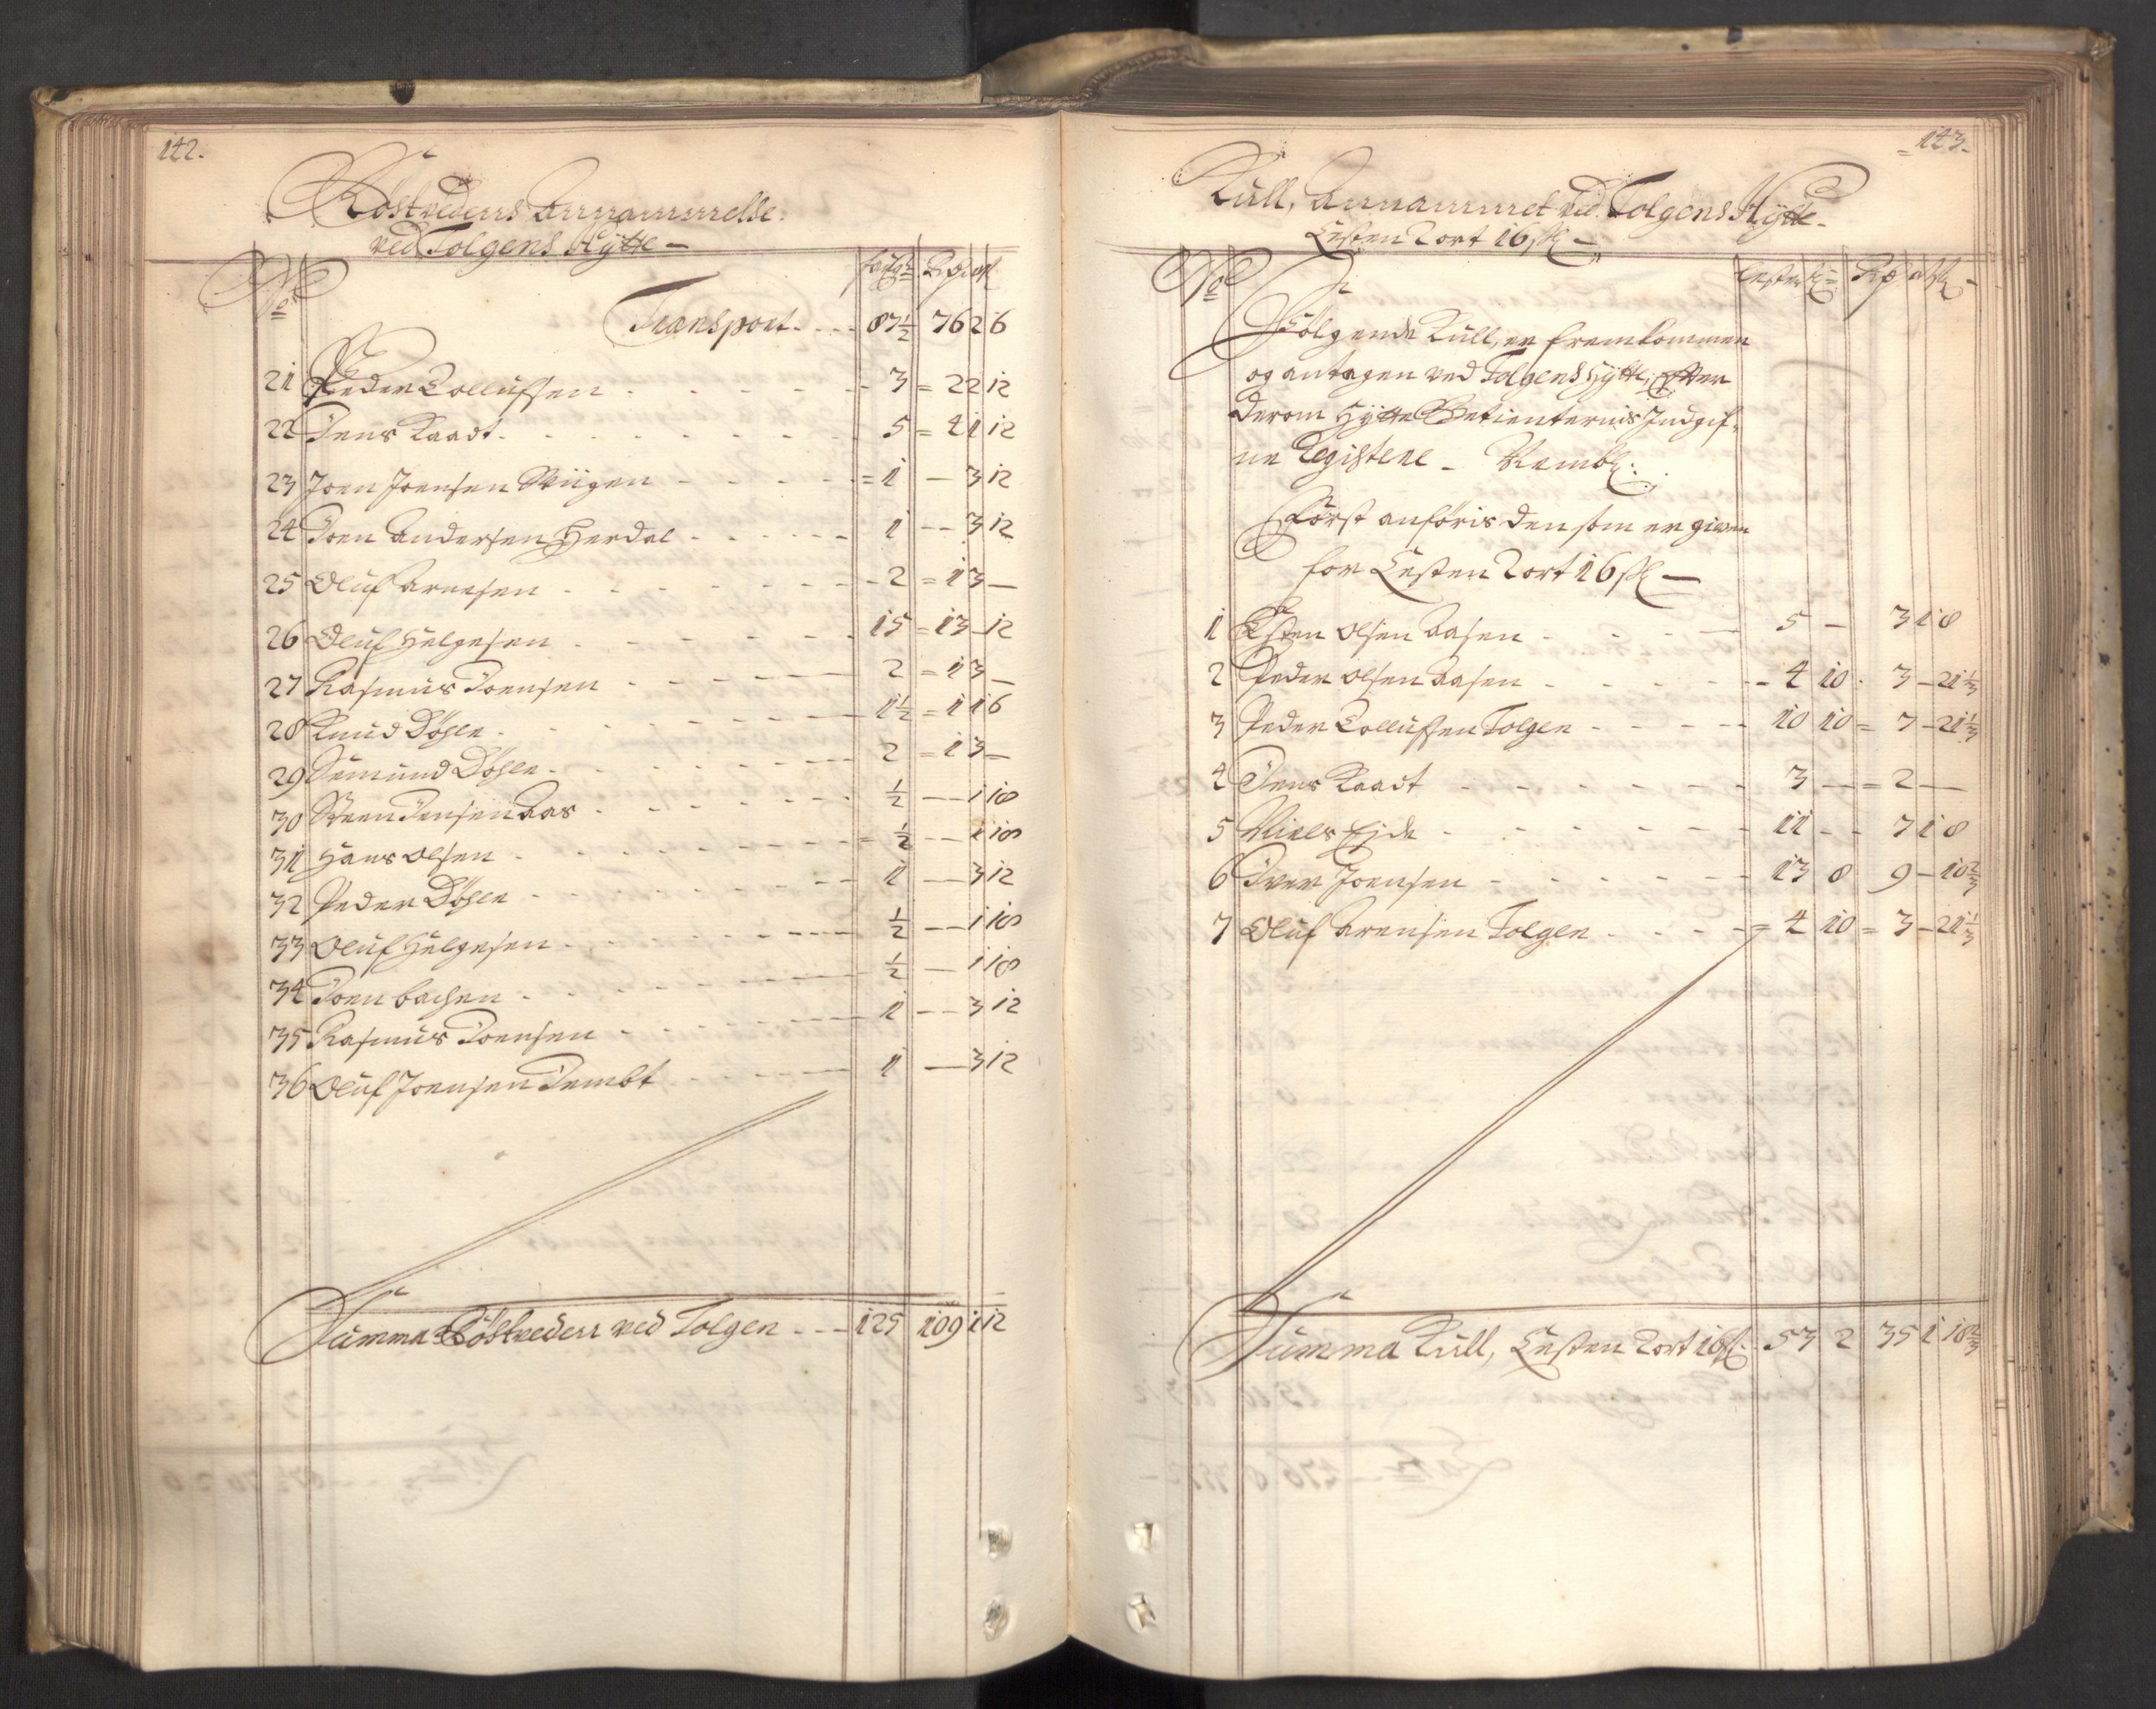 142.
Röstvedens Annammelse
ved Tolgens Hytte
No
Transport 87½ 76 2 6
21 Peder Tollufsen 3 = 2 2 12
22 Jens Kaadt 5 = 4 1 12
23 Joen Joensen Viigen = 1 - 3 12
24 Joen Andersen Herdal 1 - 3 12
25 Oluf Arnesen 2 = 1 3 -
26 Oluf Helgesen 15 = 13 - 12
27 Rasmus Joensen 2 = 1 3 -
28 Knud Döhle 1½ = 1 1 6
29 Semund Döhle 2 = 1 3 -
30 Steen Jensen Aas ½ - 1 18
31 Hans Olsen = ½ - 1 18
32 Peder Döhle 1 - 3 12
33 Oluf Helgesen ½ - 1 18
34 Joen bachen ½ - 1 18
35 Rasmus Joensen 1 - 3 12
36 Oluf Joensen Tembt 1 - 3 12
Summa Röstveden ved Tolgen 125 109 1 12
143.
Kull, Annammet ved Tolgens Hytte
Lesten 2 ort 16 sk
No
Fölgende Kull, er fremkommen
og antagen ved Tolgens Hytte, Efter
derom Hytte Betienternis Indgif-
ne Registere
Först anföris den som er given
for Lesten 2 ort 16 sk
1 Esten Olsen Aasen 5 - 3 1 8
2 Peder Olsen Aasen 4 10 3 - 21⅓
3 Peder Tollufsen Tolgen 10 10 = 7 - 21⅓
4 Jens Kaadt 3 - = 2 -
5 Niels Eide 11 - 7 1 8
6 Iver Joensen 13 8 9 - 10⅔
7 Oluf Arensen Tolgen = 4 10 = 3 - 21⅓
Summa Kull, Lesten 2 ort 16 sk 53 2 35 1 18⅔